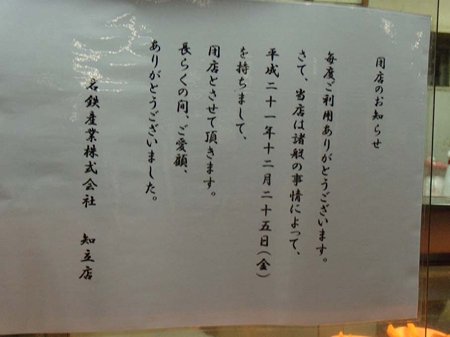 閉店のお知らせ
毎度ご利用ありがとうございます。
さて、当店は諸般の事情によって、
平成二十一年十二月二十五日(金)
を持ちまして、
閉店とさせて頂きます。
長らくの間、ご愛顧、
ありがとうございました。
名鉄産業株式会社 知立店